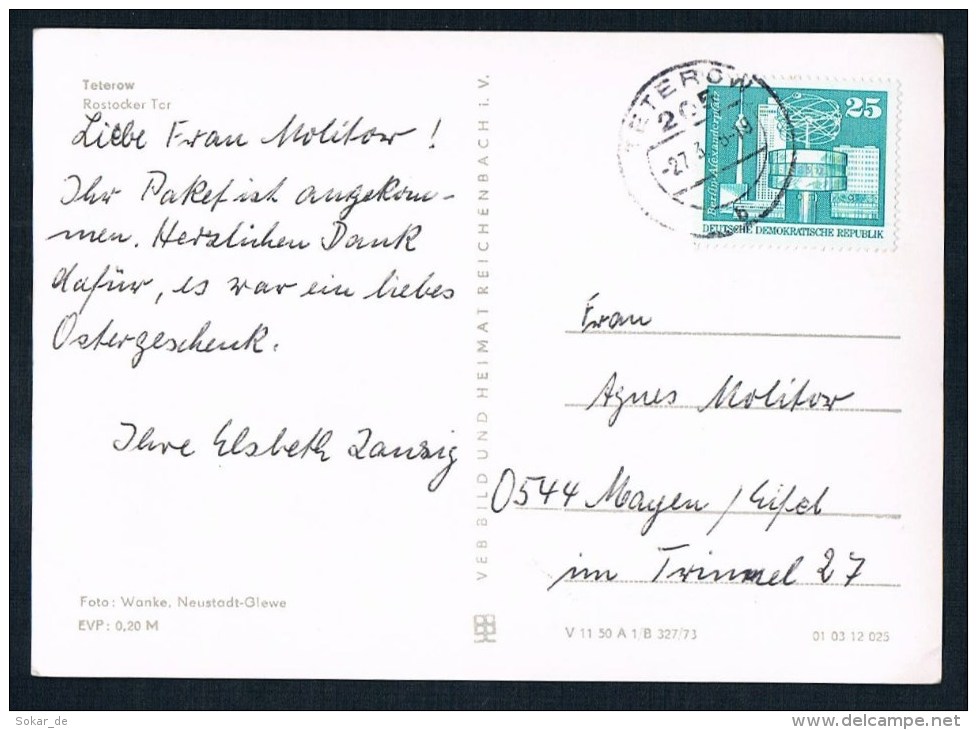 Teterow
Rostocker Tor
Liebe Frau Molitor!
Ihr Paket ist angekom-
men. Herzlichen Dank
dafür, es war ein liebes
Ostergeschenk.
Ihre Elsbeth Zanzig
Foto: Wanke, Neustadt-Glewe
EVP: 0,20 M
VEB BILD UND HEIMAT REICHENBACH i. V.
TETEROW
205
b
25
Berlin, Alexanderplatz
DEUTSCHE DEMOKRATISCHE REPUBLIK
Frau
Agnes Molitor
0544 Mayen / Eifel
im Trinnel 27
V 11 50 A 1/B 327/73
01 03 12 025
Sokar_de
www.delcampe.net